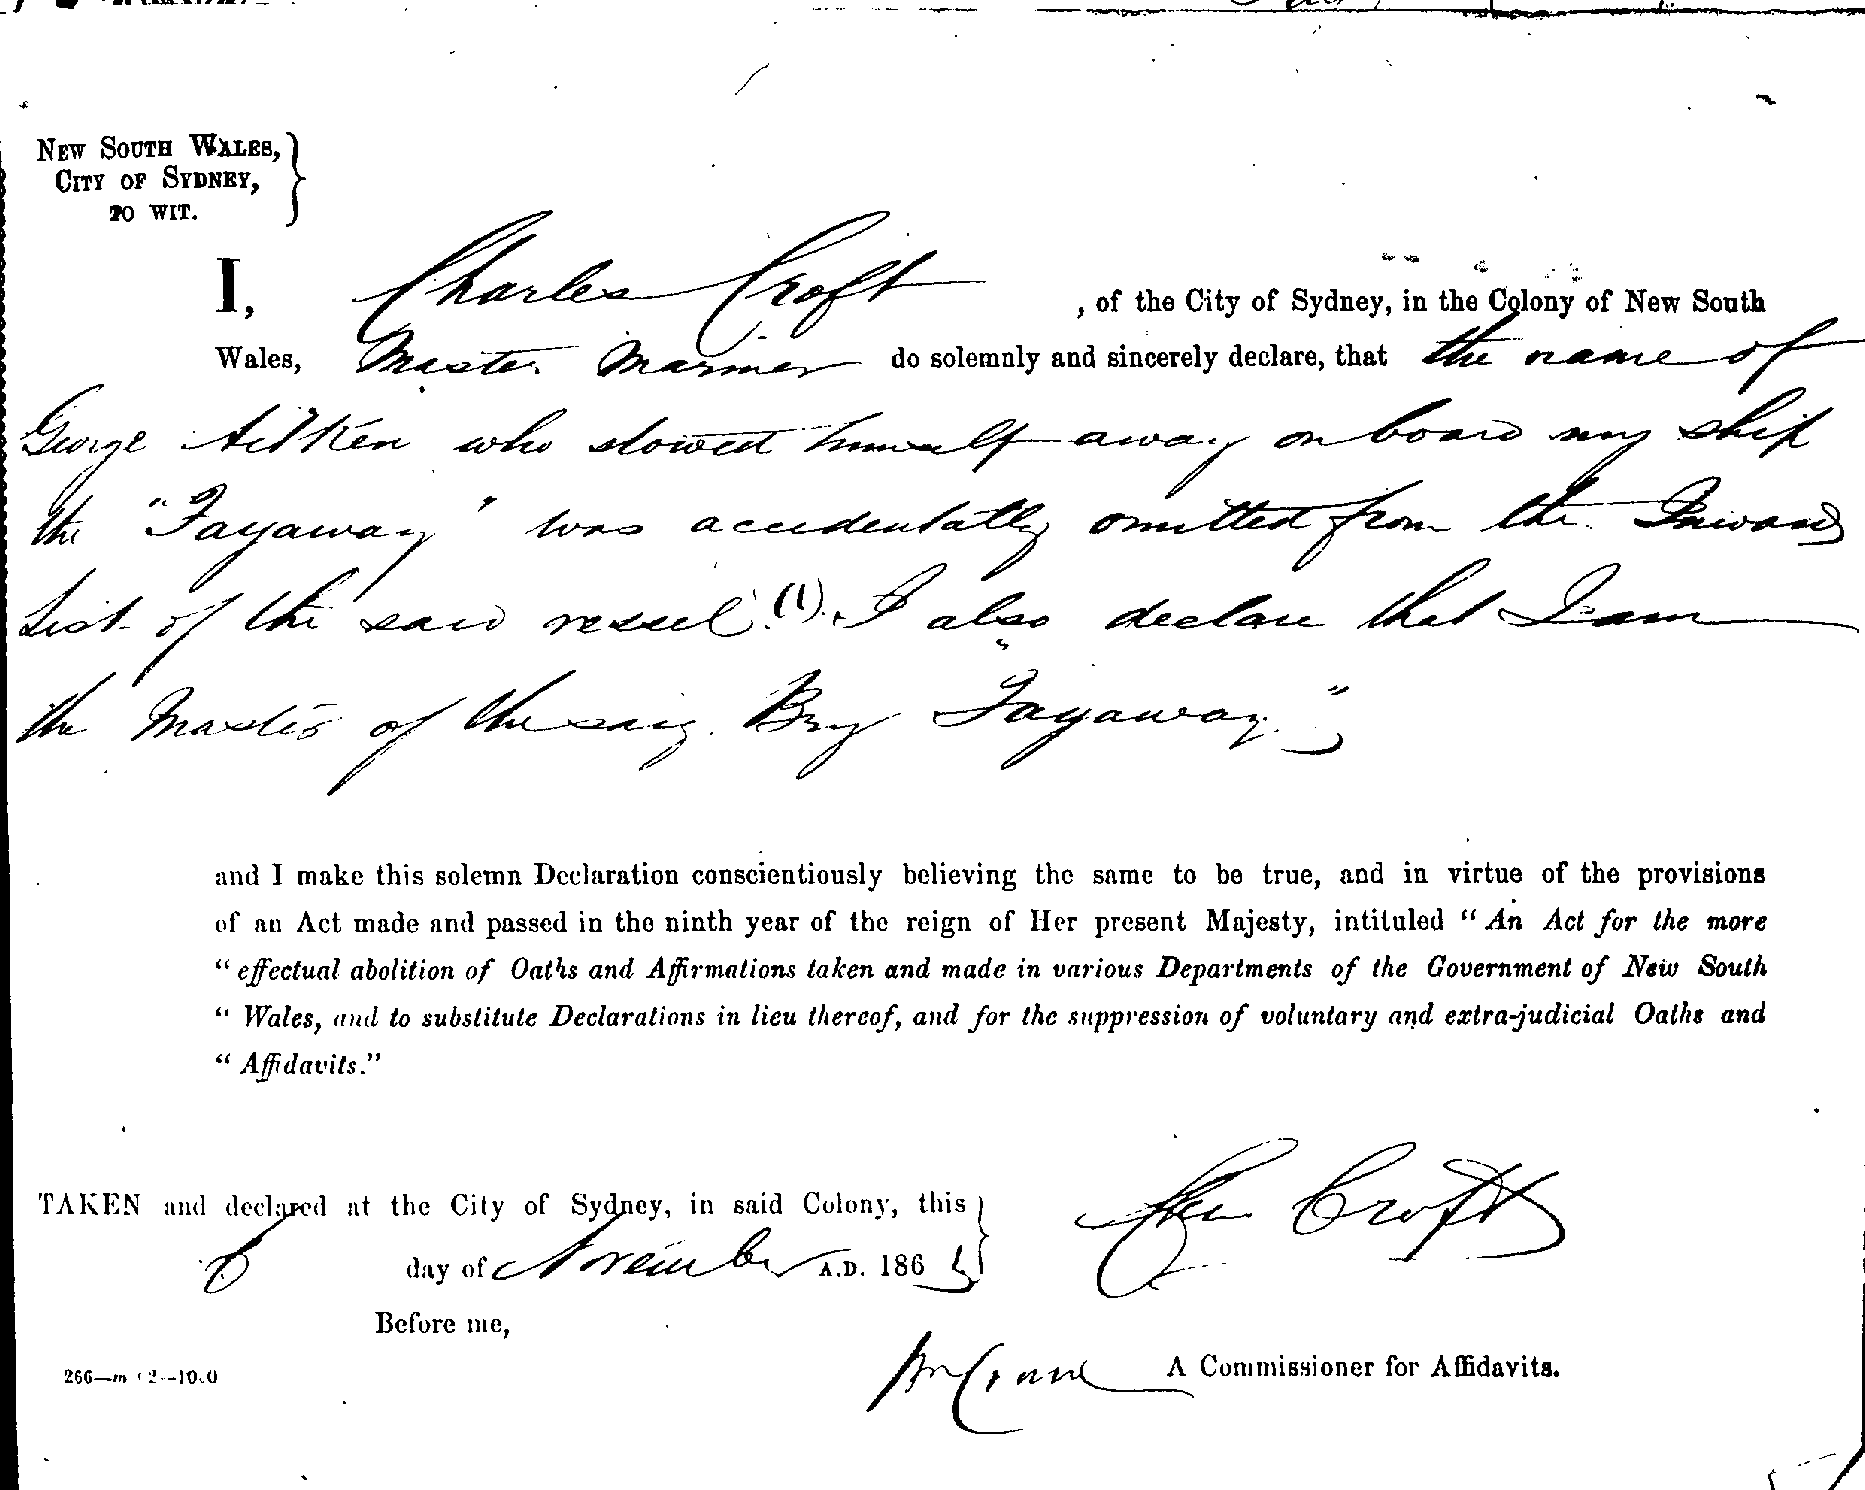 NEW SOUTH WALES,
CITY OF SYDNEY,
TO WIT.
I, Charles Croft, of the City of Sydney, in the Colony of New South
Wales, Master Mariner do solemnly and sincerely declare, that the name of
George Aitken who stowed himself away on board my ship
the "Fayaway" was accidentally omitted from the Inward
List of the said vessel (1). I also declare that I am
the Master of the said Brig "Fayaway"
and I make this solemn Declaration conscientiously believing the same to be true, and in virtue of the provisions
of an Act made and passed in the ninth year of the reign of Her present Majesty, intituled "An Act for the more
"effectual abolition of Oaths and Affirmations taken and made in various Departments of the Government of New South
"Wales, and to substitute Declarations in lieu thereof, and for the suppression of voluntary and extra-judicial Oaths and
"Affidavits."
TAKEN and declared at the City of Sydney, in said Colony, this
6 day of November A.D. 186
Before me,
Chas Croft
A Commissioner for Affidavits.